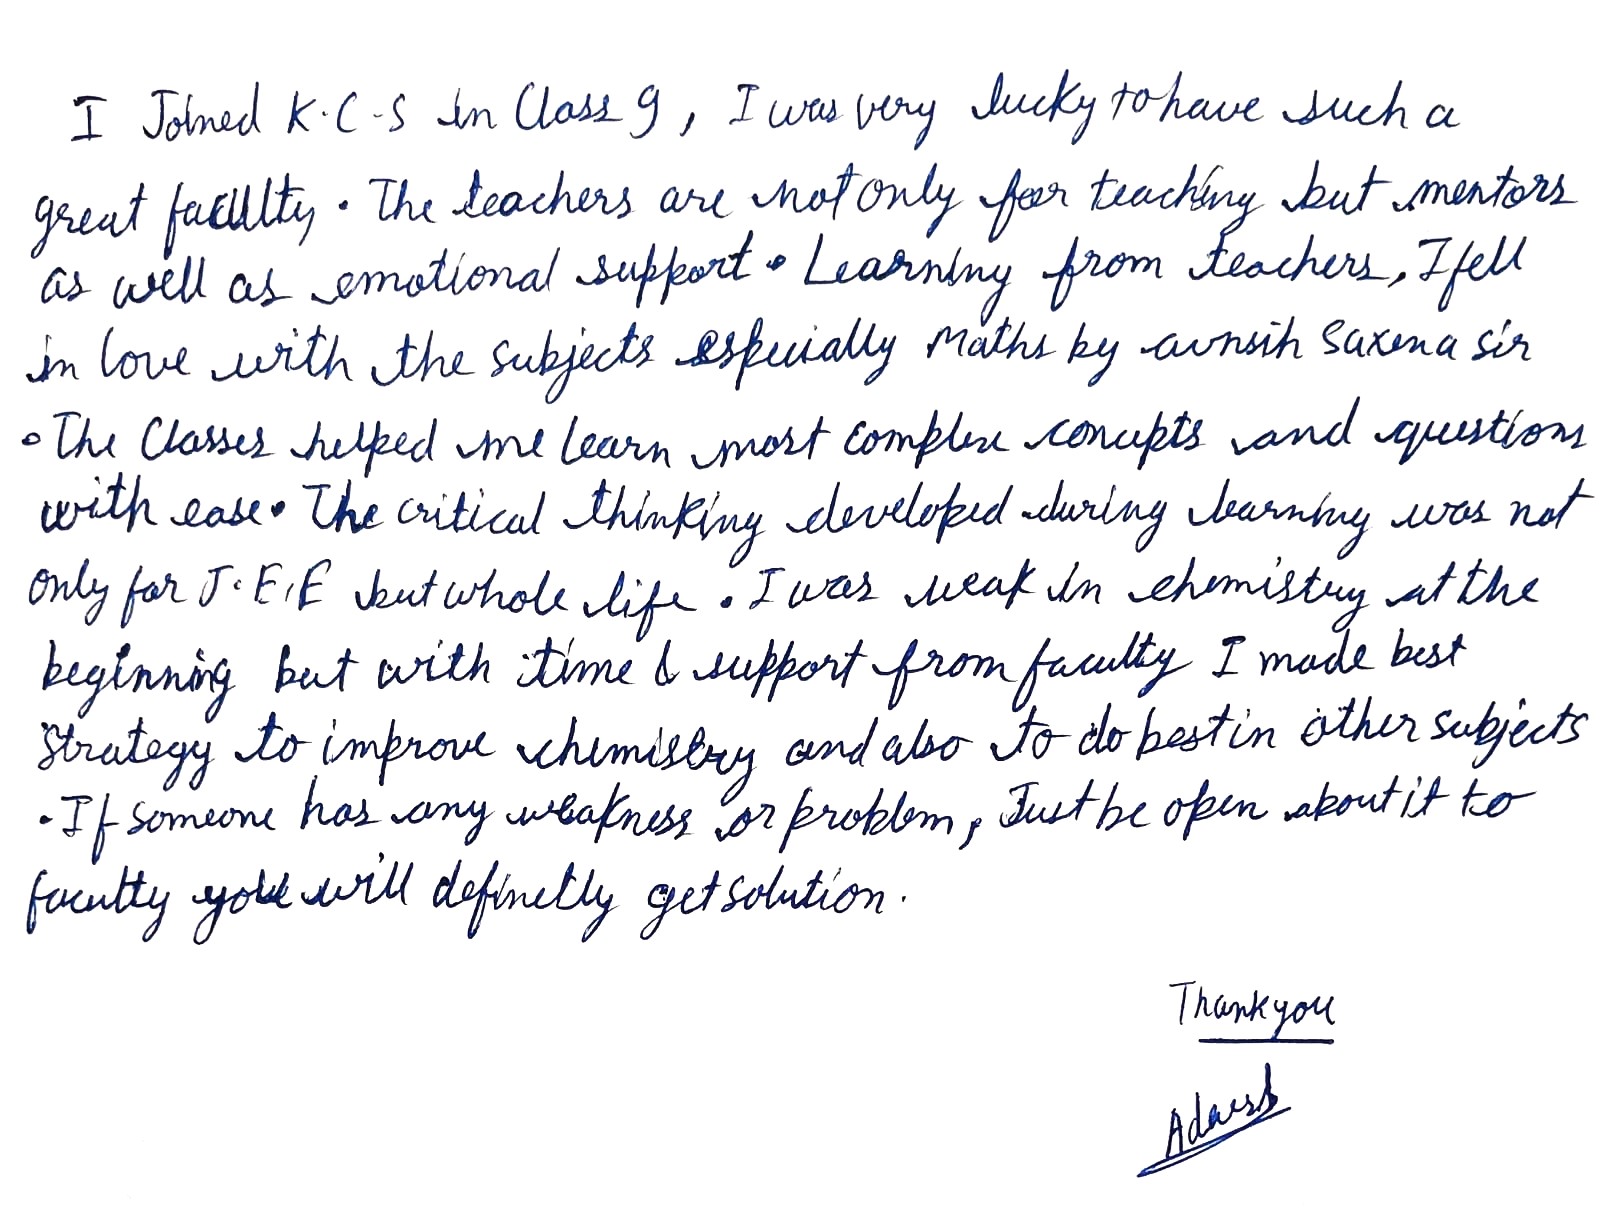 I Joined K.C.S in Class 9, I was very lucky to have such a
great faculty. The teachers are not only for teaching but mentors
as well as emotional support. Learning from teachers, I fell
in love with the subjects especially Maths by avnsih Saxena sir
. The Classes helped me learn most complex concepts and questions
with ease. The critical thinking developed during learning was not
only for J.E.E but whole life. I was weak in chemistry at the
beginning but with time & support from faculty I made best
strategy to improve chemistry and also to do best in other subjects
. If someone has any weakness or problem, Just be open about it to
faculty you will definetly get solution.
Thankyou
Adarsh